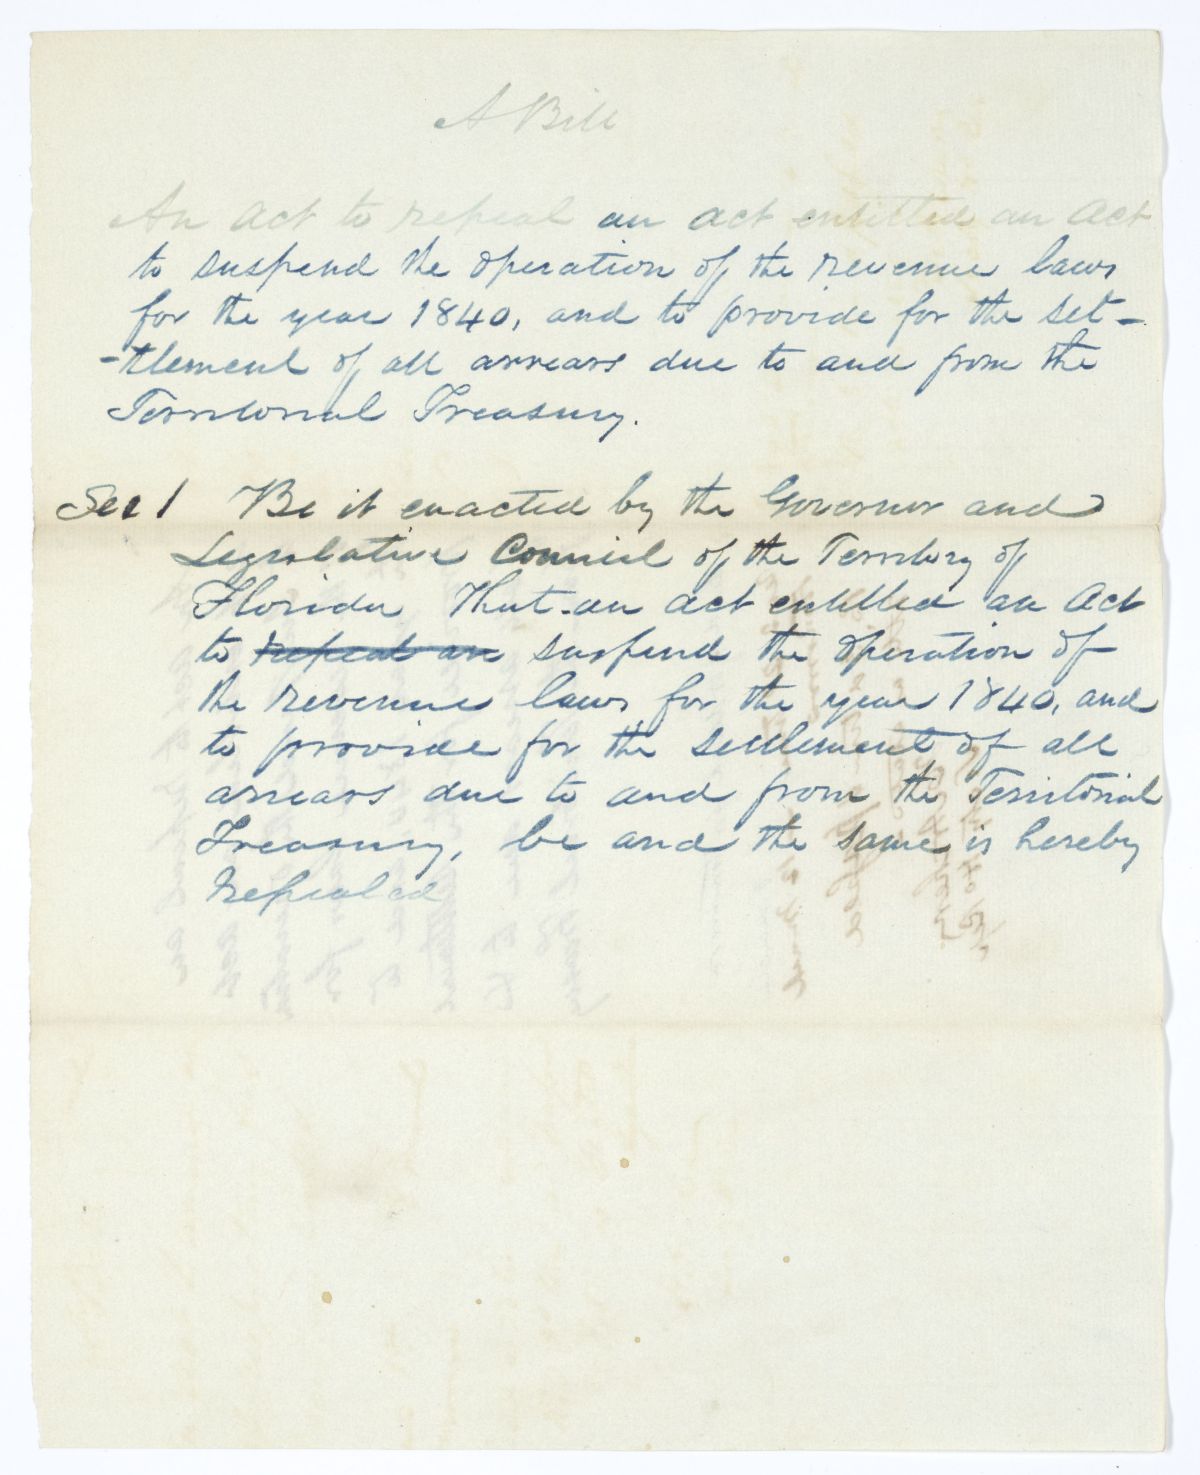 A Bill
An act to repeal an act entitled an Act
to suspend the operation of the revenue laws
for the year 1840, and to provide for the set-
-tlement of all arrears due to and from the
Territorial Treasury.
Sec 1 Be it enacted by the Governor and
Legislative Council of the Territory of
Florida That an act entitled an Act
to repeal an suspend the operation of
the revenue laws for the year 1840, and
to provide for the settlement of all
arrears due to and from the Territorial
Treasury, be and the same is hereby
repealed